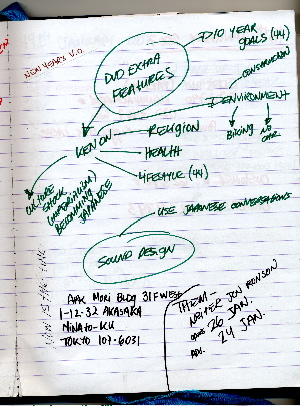 NEW YEAR'S V.O.
DVD EXTRA
FEATURES
10 YEAR
GOALS (44)
CONSUMERISM
ENVIRONMENT
BIKING
NO
CAR
KEN ON
RELIGION
HEALTH
LIFESTYLE (44)
CULTURE
SHOCK
(MATERIALISM)
BECOMING
JAPANESE
USE JAPANESE CONVERSATIONS
SOUND DESIGN
ARK MORI BLDG 31F WEST
1-12-32 AKASAKA
MINATO-KU
TOKYO 107-6031
THEM-
WRITER JON RONSON
26 JAN.
24 JAN.